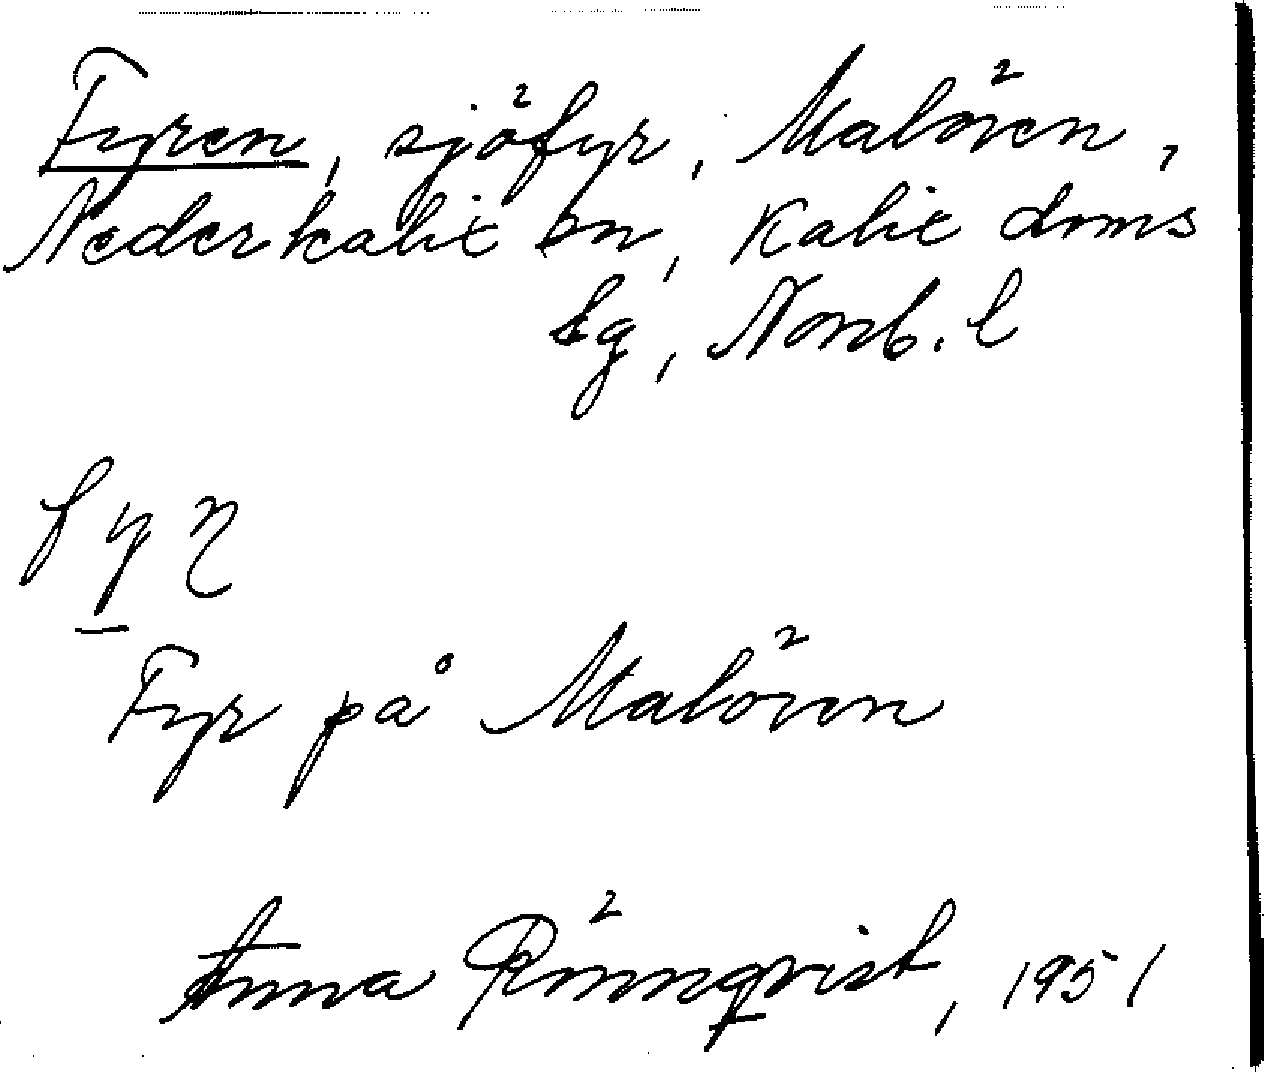 Fyren, sjöfyr, Malören,
Nederkalix sn, Kalix doms
sg, Norrb. l
fyr
Fyr på Malören
Anna Rönnqvist, 1951